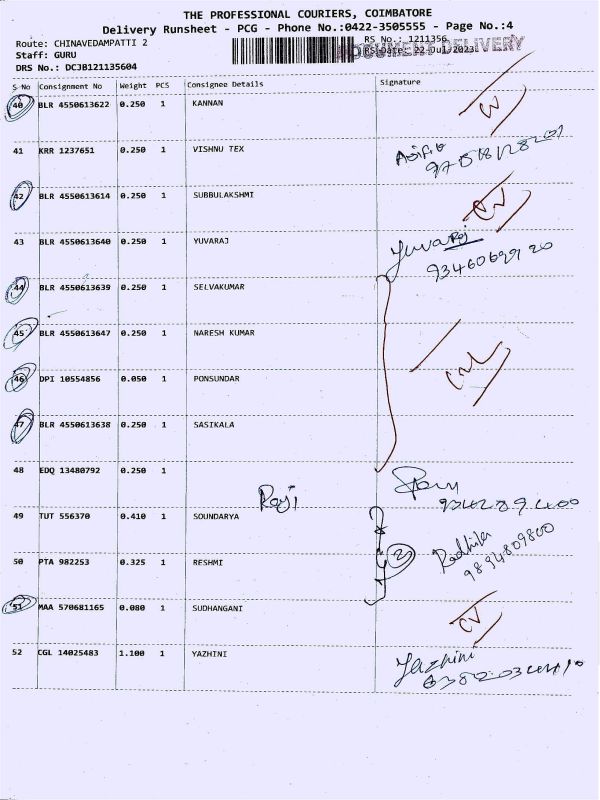 THE PROFESSIONAL COURIERS, COIMBATORE
Delivery Runsheet - PCG - Phone No.:0422-3505555 - Page No.:4
Route: CHINAVEDAMPATTI 2
RS No.: 1211356
DOCUMENT DELIVERY
Staff: GURU
RS Date: 22-Jul-2023
DRS No.: DCJB121135604
S No Consignment No Weight PCS Consignee Details Signature
40 BLR 4550613622 0.250 1 KANNAN
41 KRR 1237651 0.250 1 VISHNU TEX
42 BLR 4550613614 0.250 1 SUBBULAKSHMI
43 BLR 4550613640 0.250 1 YUVARAJ Yuvaraj
44 BLR 4550613639 0.250 1 SELVAKUMAR
45 BLR 4550613647 0.250 1 NARESH KUMAR
46 DPI 10554856 0.050 1 PONSUNDAR
47 BLR 4550613638 0.250 1 SASIKALA
48 EDQ 13480792 0.250 1
Raji
49 TUT 556370 0.410 1 SOUNDARYA
2
Radhika
9894809800
50 PTA 982253 0.325 1 RESHMI
51 MAA 570681165 0.080 1 SUDHANGANI
52 CGL 14025483 1.100 1 YAZHINI Yazhini